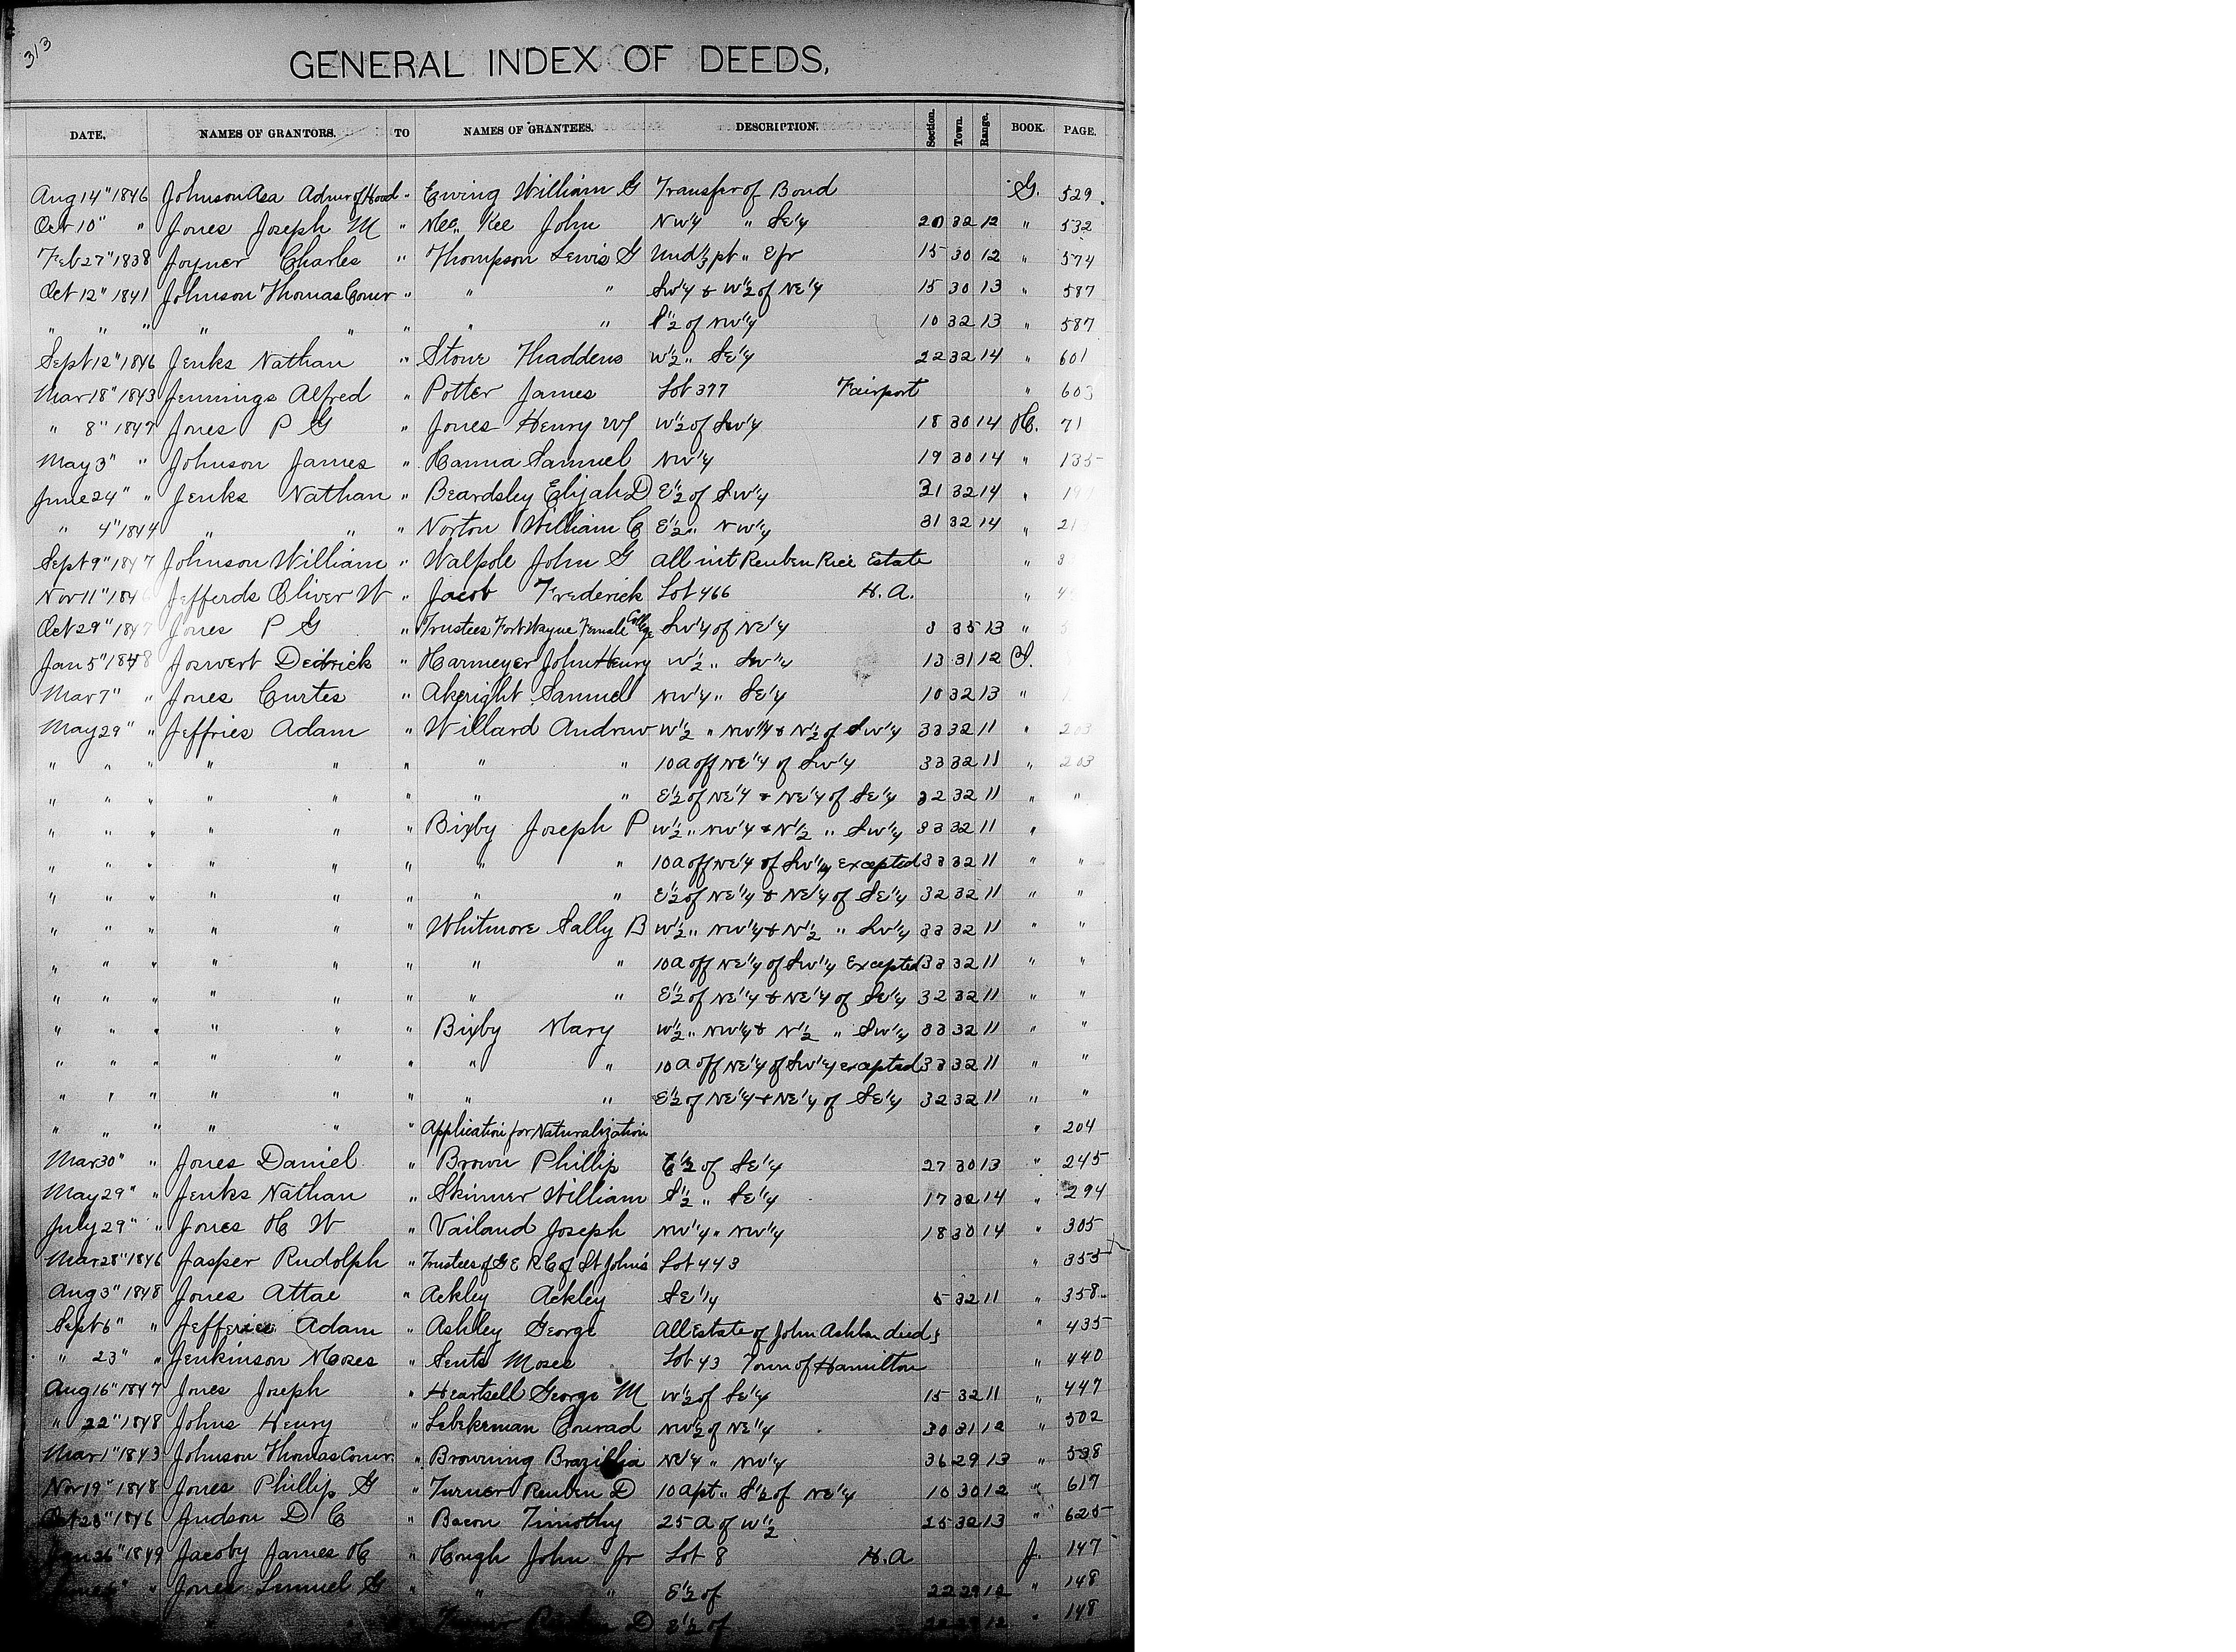 313
GENERAL INDEX OF DEEDS,
DATE, NAMES OF GRANTORS. TO NAMES OF GRANTEES. DESCRIPTION. Section. Town. Range. BOOK. PAGE.
Aug 14" 1846 Johnson Asa Admr of Hood " Ewing William G Transfer of Bond G. 529.
Oct 10" " Jones Joseph M " Mc Kee John NW¼ " SE¼ 20 32 12 " 532
Feb 27" 1838 Joyner Charles " Thompson Lewis G Und ⅓ pt " E fr 15 30 12 " 574
Oct 12" 1841 Johnson Thomas Comr " " " SW¼ & W½ of NE¼ 15 30 13 " 587
" " " " " " " " S½ of NW¼ 10 32 13 " 587
Sept 12" 1846 Jenks Nathan " Stone Thaddeus W½ " SE¼ 22 32 14 " 601
Mar 18" 1843 Jennings Alfred " Potter James Lot 377 Fairport " 603
" 8" 1847 Jones P G " Jones Henry W W½ of SW¼ 18 30 14 H. 71
May 3" " Johnson James " Hanna Samuel NW¼ 19 30 14 " 135
June 24" " Jenks Nathan " Beardsley Elijah D E½ of SW¼ 31 32 14 "
" 4" 1844 " " " Norton William C E½ " NW¼ 31 32 14 "
Sept 9" 1847 Johnson William " Walpole John G All int Reuben Rice Estate "
Nov 11" Jefferds Oliver W " Jacob Frederick Lot 466 H.A. "
Oct 29" 1847 Jones P G " Trustees Fort Wayne Female College SW¼ of NE¼ 3 35 13 "
Jan 5" 1848 Joswert Dedrick " Harmeyer John Henry W½ " SW¼ 13 31 12 I.
Mar 7" " Jones Curtes " Akeright Samuel NW¼ " SE¼ 10 32 13 "
May 29" " Jeffries Adam " Willard Andrew W½ " NW¼ & N½ of SW¼ 33 32 11 " 203
" " " " " " " " 10 a off NE¼ of SW¼ 33 32 11 " 203
" " " " " " " " E½ of NE¼ & NE¼ of SE¼ 32 32 11 " "
" " " " " " Bixby Joseph P W½ " NW¼ & N½ " SW¼ 33 32 11 "
" " " " " " " " 10 a off NE¼ of SW¼ excepted 33 32 11 " "
" " " " " " " " E½ of NE¼ & NE¼ of SE¼ 32 32 11 " "
" " " " " " Whitmore Sally B W½ " NW¼ & N½ " SW¼ 33 32 11 " "
" " " " " " " " 10 a off NE¼ of SW¼ Excepted 33 32 11 " "
" " " " " " " " E½ of NE¼ & NE¼ of SE¼ 32 32 11 " "
" " " " " " Bixby Mary W½ " NW¼ & N½ " SW¼ 33 32 11 " "
" " " " " " " " 10 a off NE¼ of SW¼ excepted 33 32 11 " "
" " " " " " " " E½ of NE¼ & NE¼ of SE¼ 32 32 11 " "
" " " " " " Application for Naturalization " 204
Mar 30" " Jones Daniel " Brown Phillip E½ of SE¼ 27 30 13 " 245
May 29" " Jenks Nathan " Skinner William S½ " SE¼ 17 32 14 " 294
July 29" " Jones H W " Vailand Joseph NW¼ " NW¼ 18 30 14 " 305
Mar 28" 1846 Jasper Rudolph " Trustees of G E R C of St John's Lot 443 " 355
Aug 3" 1848 Jones Attae " Ackley Ackley SE¼ 5 32 11 " 358
Sept 6" " Jefferies Adam " Ashley George All Estate of John decd " 435
" 23" " Jenkinson Moses " Sents Moses Lot 43 Town of Hamilton " 440
Aug 16" 1847 Jones Joseph " Heartsell George M W½ of SE¼ 15 32 11 " 447
" 22" 1848 Johns Henry " Lebekeman Conrad NW½ of NE¼ 30 31 12 " 502
Mar 1" 1843 Johnson Thomas Comr. " Browning Brazillia NE¼ " NW¼ 36 29 13 " 538
Nov 19" 1848 Jones Phillip G " Turner Reuben D 10 a pt " S½ of NE¼ 10 30 12 " 617
Oct 28" 1846 Judson D C " Bacon Timothy 25 a of W½ 25 32 13 " 625
Jan 26" 1849 Jacoby James H " Hough John Jr Lot 8 H.A J. 147
" Jones Lemuel G " " " E½ of 22 29 12 " 148
Turner D E½ of 12 " 148